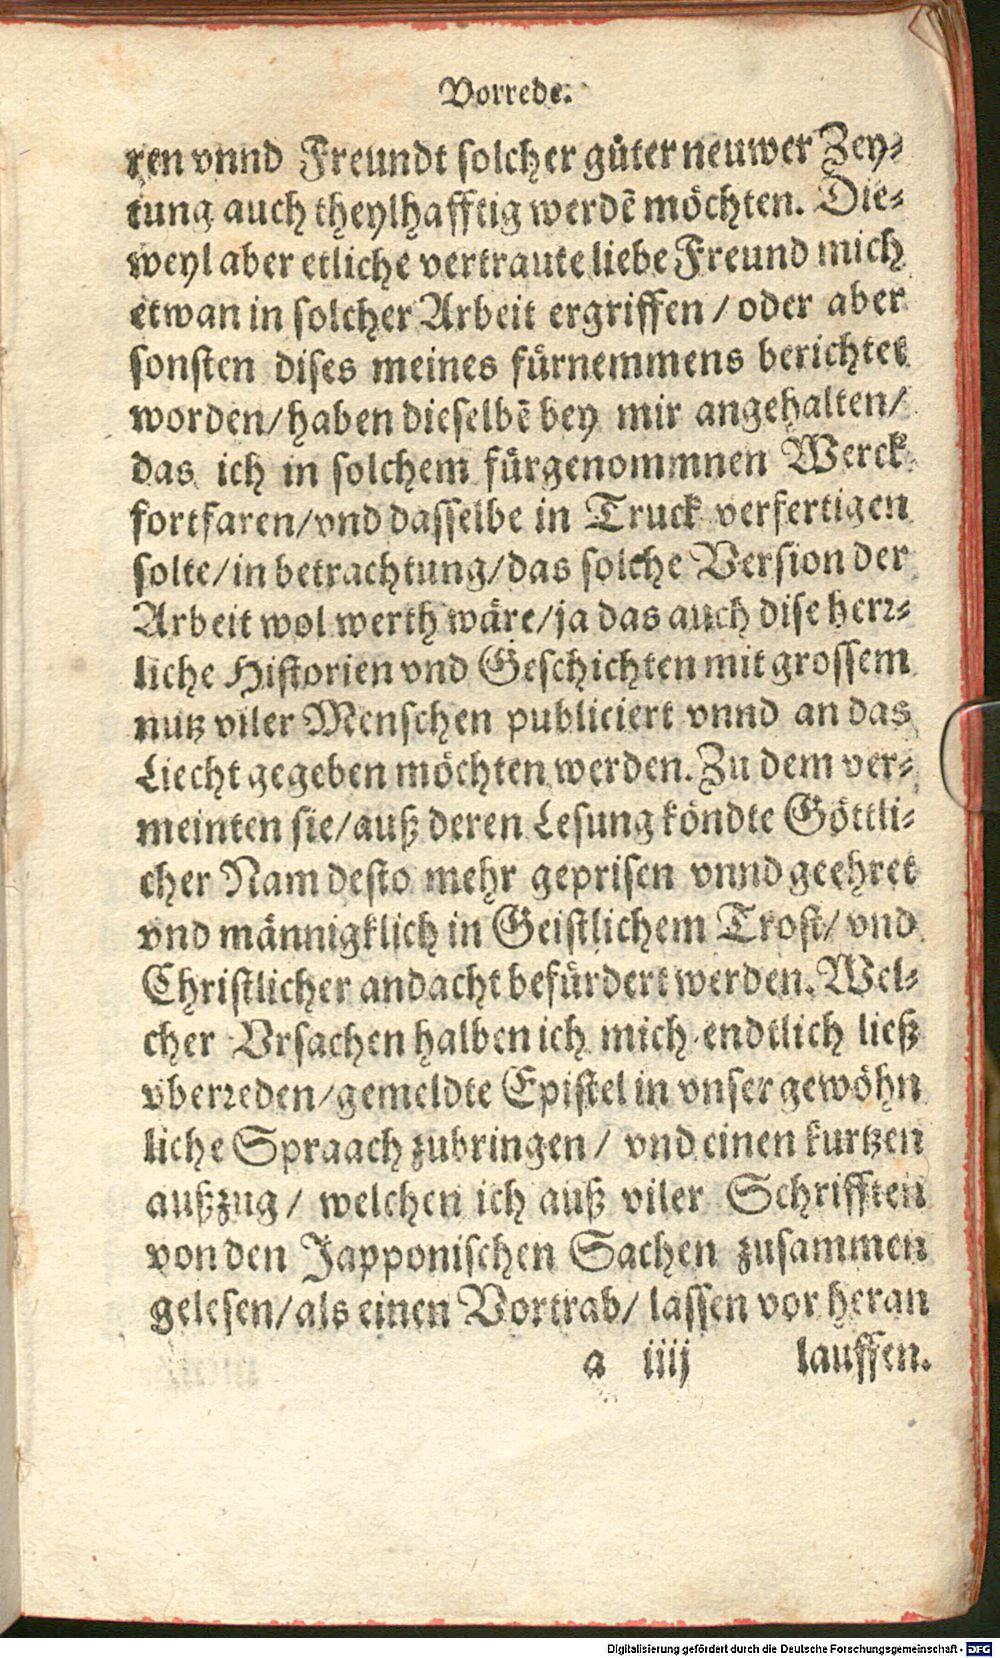 Vorrede.
ren vnnd Freundt solcher güter neuwer Zey-
tung auch theylhafftig werdē möchten. Die-
weyl aber etliche vertraute liebe Freund mich
etwan in solcher Arbeit ergriffen / oder aber
sonsten dises meines fürnemmens berichtet
worden/ haben dieselbē bey mir angehalten/
das ich in solchem fürgenommnen Werck
fortfaren/vnd dasselbe in Truck verfertigen
solte/in betrachtung/das solche Version der
Arbeit wol werth wäre/ja das auch dise herr-
liche Historien vnd Geschichten mit grossem
nutz viler Menschen publiciert vnnd an das
Liecht gegeben möchten werden. Zu dem ver-
meinten sie/auß deren Lesung köndte Göttli-
cher Nam desto mehr geprisen vnnd geehret
vnd männigklich in Geistlichem Trost/ vnd
Christlicher andacht befürdert werden. Wel-
cher Vrsachen halben ich mich endtlich ließ
vberreden/gemeldte Epistel in vnser gewöhn
liche Spraach zubringen / vnd einen kurtzen
außzug / welchen ich auß viler Schrifften
von den Japponischen Sachen zusammen
gelesen/als einen Vortrab/ lassen vor heran
a iiij lauffen.
Digitalisierung gefördert durch die Deutsche Forschungsgemeinschaft - DFG